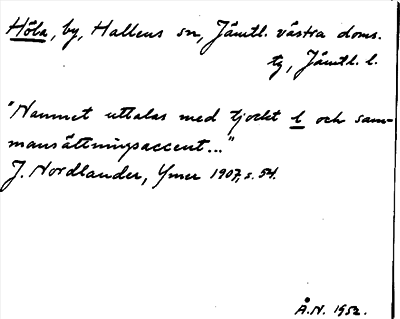 Höla, by, Hallens sn, Jämtl. västra doms.
tg, Jämtl. l.
"Namnet uttalas med tjockt l och sam-
mansättningsaccent..."
J. Nordlander, Ymer 1907, s. 54.
Å.N. 1952.